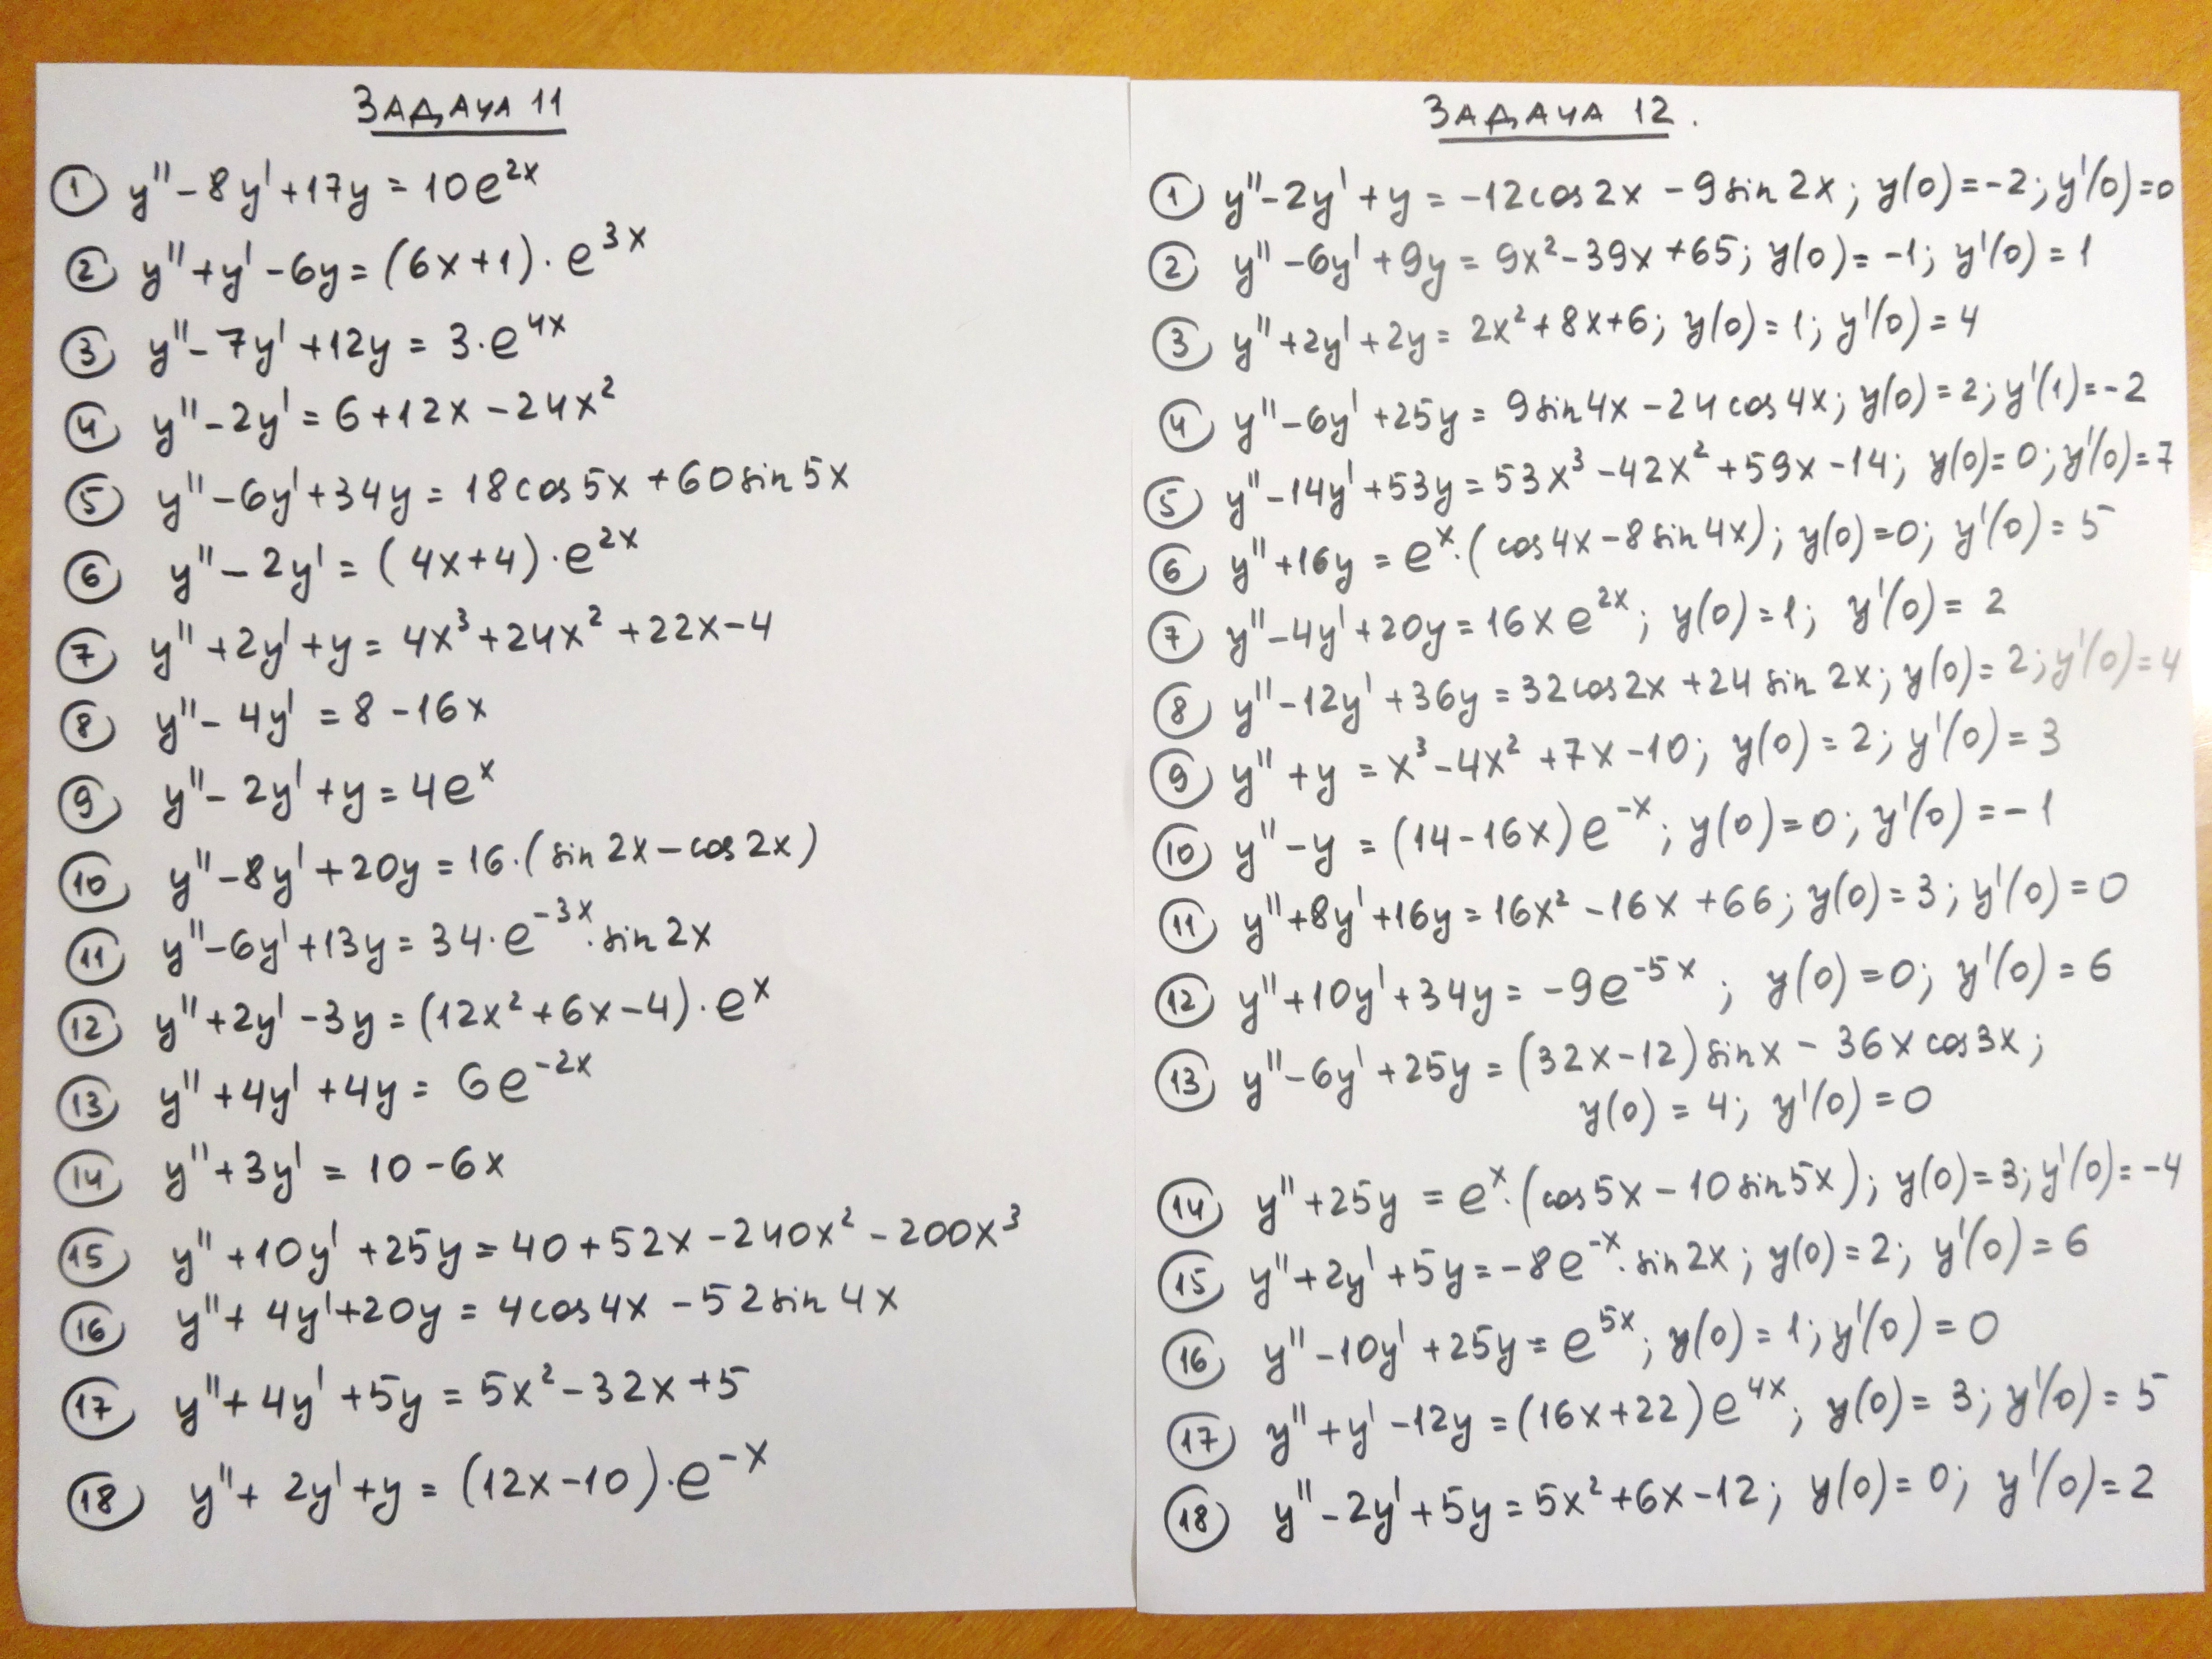 ЗАДАЧА 11
① y'' - 8y' + 17y = 10e^{2x}
② y'' + y' - 6y = (6x+1)·e^{3x}
③ y'' - 7y' + 12y = 3·e^{4x}
④ y'' - 2y' = 6 + 12x - 24x²
⑤ y'' - 6y' + 34y = 18cos5x + 60sin5x
⑥ y'' - 2y' = (4x+4)·e^{2x}
⑦ y'' + 2y' + y = 4x³ + 24x² + 22x - 4
⑧ y'' - 4y' = 8 - 16x
⑨ y'' - 2y' + y = 4e^x
⑩ y'' - 8y' + 20y = 16·(sin2x - cos2x)
⑪ y'' - 6y' + 13y = 34·e^{-3x}·sin2x
⑫ y'' + 2y' - 3y = (12x² + 6x - 4)·e^x
⑬ y'' + 4y' + 4y = 6e^{-2x}
⑭ y'' + 3y' = 10 - 6x
⑮ y'' + 10y' + 25y = 40 + 52x - 240x² - 200x³
⑯ y'' + 4y' + 20y = 4cos4x - 52sin4x
⑰ y'' + 4y' + 5y = 5x² - 32x + 5
⑱ y'' + 2y' + y = (12x-10)·e^{-x}
ЗАДАЧА 12.
① y'' - 2y' + y = -12cos2x - 9sin2x; y(0) = -2; y'(0) = 0
② y'' - 6y' + 9y = 9x² - 39x + 65; y(0) = -1; y'(0) = 1
③ y'' + 2y' + 2y = 2x² + 8x + 6; y(0) = 1; y'(0) = 4
④ y'' - 6y' + 25y = 9sin4x - 24cos4x; y(0) = 2; y'(1) = -2
⑤ y'' - 14y' + 53y = 53x³ - 42x² + 59x - 14; y(0) = 0; y'(0) = 7
⑥ y'' + 16y = e^x·(cos4x - 8sin4x); y(0) = 0; y'(0) = 5
⑦ y'' - 4y' + 20y = 16xe^{2x}; y(0) = 1; y'(0) = 2
⑧ y'' - 12y' + 36y = 32cos2x + 24sin2x; y(0) = 2; y'(0) = 4
⑨ y'' + y = x³ - 4x² + 7x - 10; y(0) = 2; y'(0) = 3
⑩ y'' - y = (14-16x)e^{-x}; y(0) = 0; y'(0) = -1
⑪ y'' + 8y' + 16y = 16x² - 16x + 66; y(0) = 3; y'(0) = 0
⑫ y'' + 10y' + 34y = -9e^{-5x}; y(0) = 0; y'(0) = 6
⑬ y'' - 6y' + 25y = (32x-12)sinx - 36xcos3x;
y(0) = 4; y'(0) = 0
⑭ y'' + 25y = e^x·(cos5x - 10sin5x); y(0) = 3; y'(0) = -4
⑮ y'' + 2y' + 5y = -8e^{-x}·sin2x; y(0) = 2; y'(0) = 6
⑯ y'' - 10y' + 25y = e^{5x}; y(0) = 1; y'(0) = 0
⑰ y'' + y' - 12y = (16x+22)e^{4x}; y(0) = 3; y'(0) = 5
⑱ y'' - 2y' + 5y = 5x² + 6x - 12; y(0) = 0; y'(0) = 2